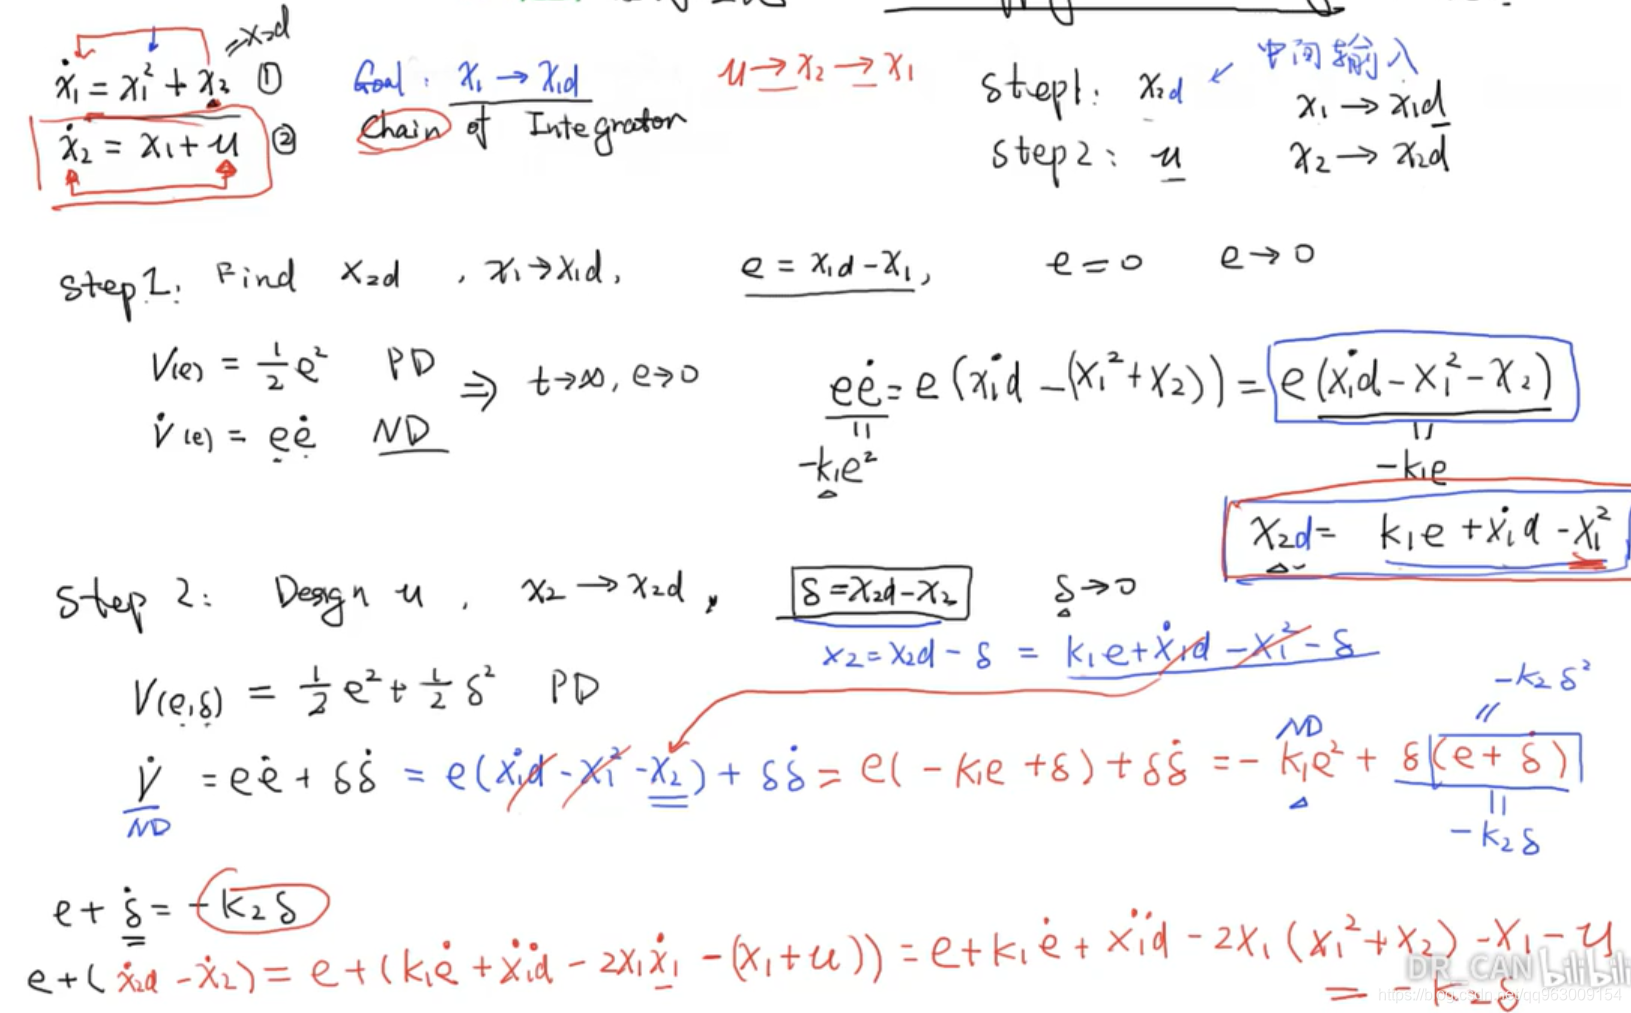 ẋ₁ = x₁² + x₂ ① ⇒x₂d
ẋ₂ = x₁ + u ②
Goal: x₁ → x₁d
Chain of Integrator
u → x₂ → x₁
step1: x₂d ↙ 中间输入
x₁ → x₁d
step2: u x₂ → x₂d
step1: Find x₂d , x₁→x₁d, e = x₁d - x₁, e = 0 e → 0
V(e) = 1/2 e² PD
V̇(e) = eė ND
⇒ t→∞, e→0
eė = e(ẋ₁d - (x₁² + x₂)) = e(ẋ₁d - x₁² - x₂)
= -k₁e²
= -k₁e
x₂d = k₁e + ẋ₁d - x₁²
step 2: Design u , x₂ → x₂d , δ = x₂d - x₂ δ → 0
x₂ = x₂d - δ = k₁e + ẋ₁d - x₁² - δ
V(e,δ) = 1/2 e² + 1/2 δ² PD
-k₂δ²
ND
V̇ = eė + δδ̇ = e(ẋ₁d - x₁² - x₂) + δδ̇ = e(-k₁e + δ) + δδ̇ = -k₁e² + δ(e + δ̇)
ND
= -k₂δ
e + δ̇ = -k₂δ
e + (ẋ₂d - ẋ₂) = e + (k₁ė + ẍ₁d - 2x₁ẋ₁ - (x₁ + u)) = e + k₁ė + ẍ₁d - 2x₁(x₁² + x₂) - x₁ - u
= -k₂δ
DR_CAN bilibili
https://blog.csdn.net/qq963009154